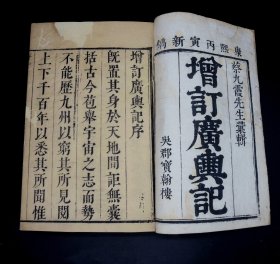 康熙丙寅新鐫
蔡九霞先生彙輯
增訂廣輿記
吳郡寶翰樓
增訂廣輿記序
既置其身於天地間詎無囊
括古今苞舉宇宙之志而勢
不能歷九州以窮其所見閱
上下千百年以悉其所聞惟